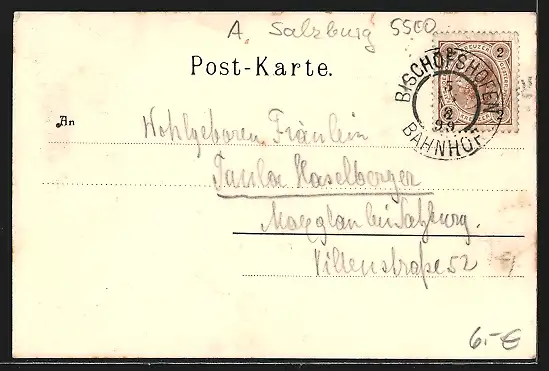 A. Salzburg 5500
Post-Karte.
2 KREUZER 2
BISCHOFSHOFEN
5
8
99
BAHNHOF
An
Wohlgeboren Fräulein
Paula Haselberger
Maxglan bei Salzburg.
Villenstraße 52
6.-€